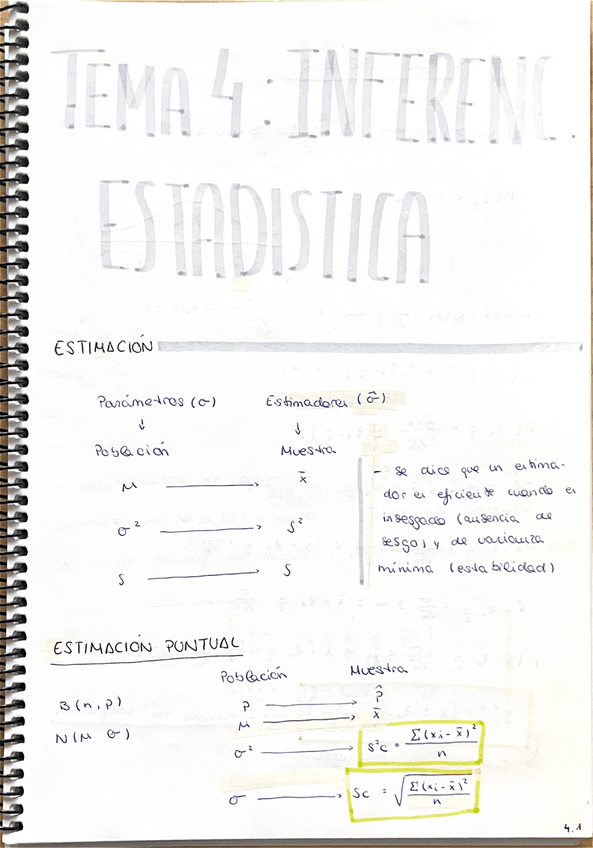 TEMA 4: INFERENC.
ESTADISTICA
ESTIMACIÓN
Parámetros (σ) Estimadores (σ̂)
↓ ↓
Población Muestra
μ → x̄
σ² → S²
S → S
- se dice que un estima-
dor es eficiente cuando es
insesgado (ausencia de
sesgo) y de varianza
mínima (estabilidad)
ESTIMACIÓN PUNTUAL
Población Muestra
B(n,p) p → p̂
μ → x̄
N(μ σ)
σ² → S²c = Σ(xi - x̄)² / n
σ → Sc = √(Σ(xi - x̄)² / n)
4.1